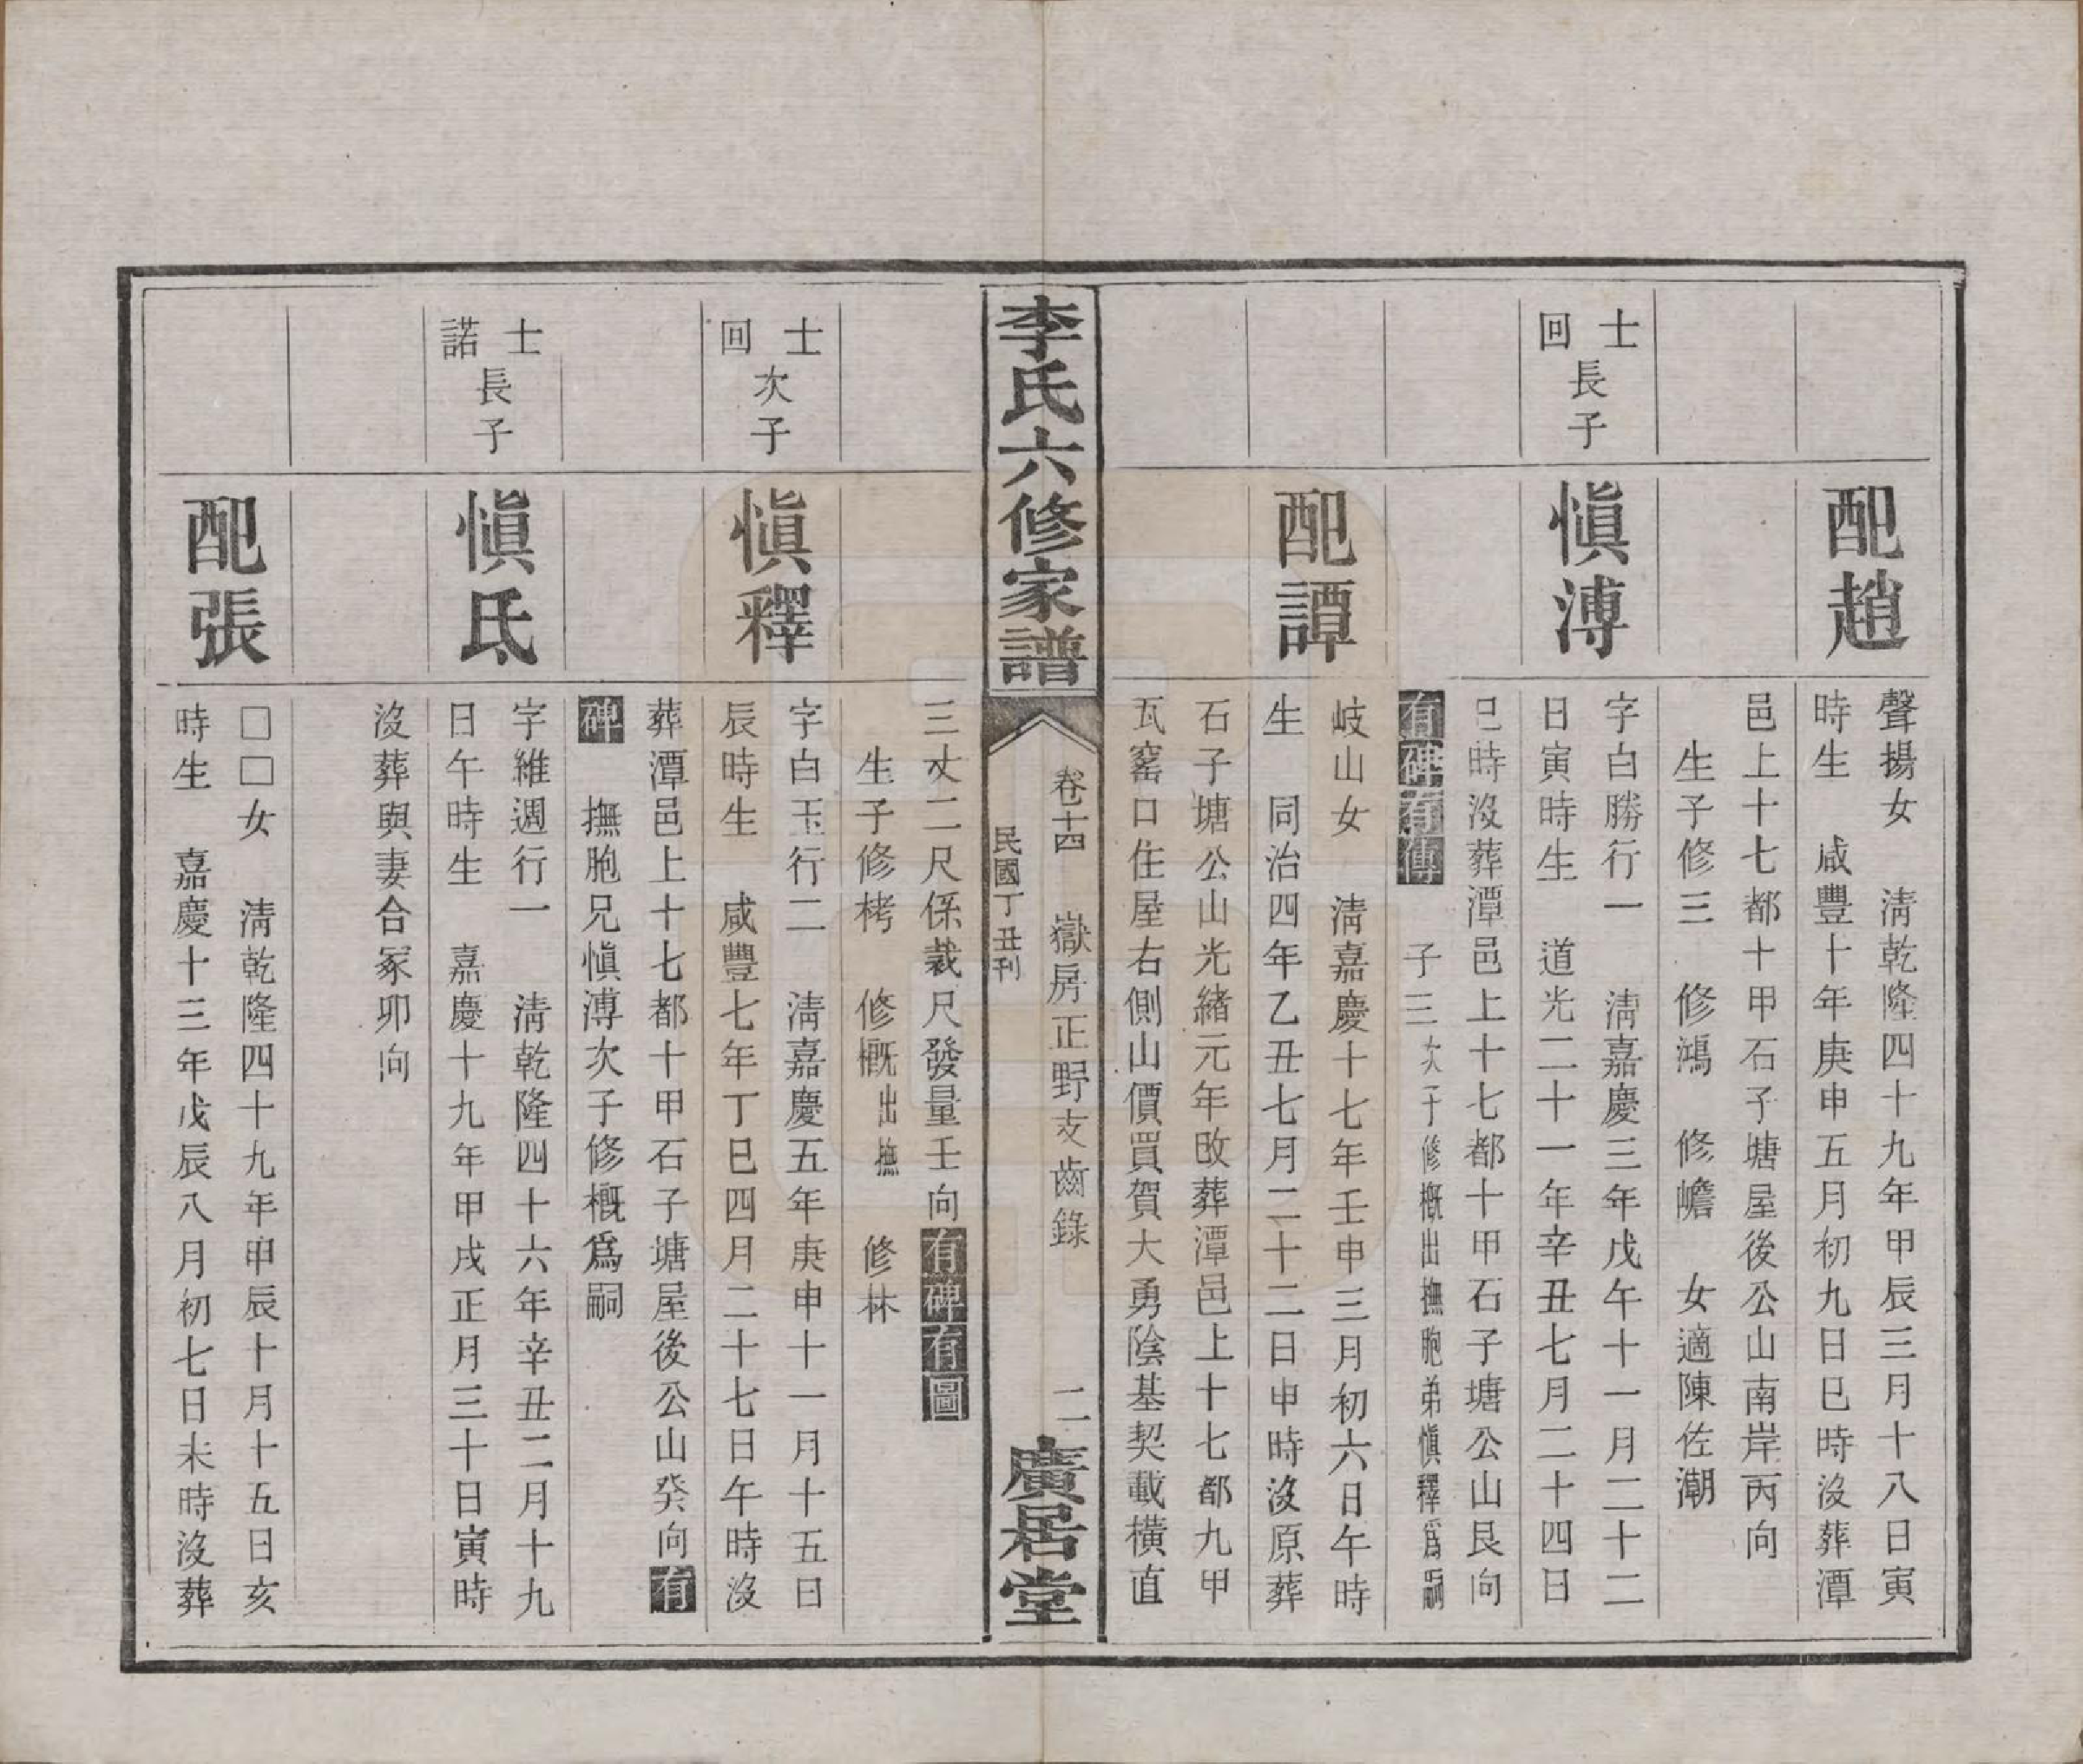 配趙
聲揚女　淸乾隆四十九年甲辰三月十八日寅
時生　咸豐十年庚申五月初九日巳時沒葬潭
邑上十七都十甲石子塘屋後公山南岸丙向
生子修三　修鴻　修幨　女適陳佐潮
士回長子
愼溥
字白勝行一　淸嘉慶三年戊午十一月二十二
日寅時生　道光二十一年辛丑七月二十四日
巳時沒葬潭邑上十七都十甲石子塘公山艮向
有碑有傳　子三次子修概出撫胞弟愼釋爲嗣
配譚
岐山女　淸嘉慶十七年壬申三月初六日午時
生　同治四年乙丑七月二十二日申時沒原葬
石子塘公山光緖元年改葬潭邑上十七都九甲
瓦窰口住屋右側山價買賀大勇陰基契載橫直
李氏六修家譜
卷十四　嶽房正野支齒錄　二
民國丁丑刊
廣居堂
三丈二尺係裁尺發量壬向有碑有圖
生子修栲　修概出撫　修林
士回次子
愼釋
字白玉行二　淸嘉慶五年庚申十一月十五日
辰時生　咸豐七年丁巳四月二十七日午時沒
葬潭邑上十七都十甲石子塘屋後公山癸向有
碑　撫胞兄愼溥次子修概爲嗣
士諾長子
愼氐
字維週行一　淸乾隆四十六年辛丑二月十九
日午時生　嘉慶十九年甲戌正月三十日寅時
沒葬與妻合冢卯向
配張
□□女　淸乾隆四十九年甲辰十月十五日亥
時生　嘉慶十三年戊辰八月初七日未時沒葬